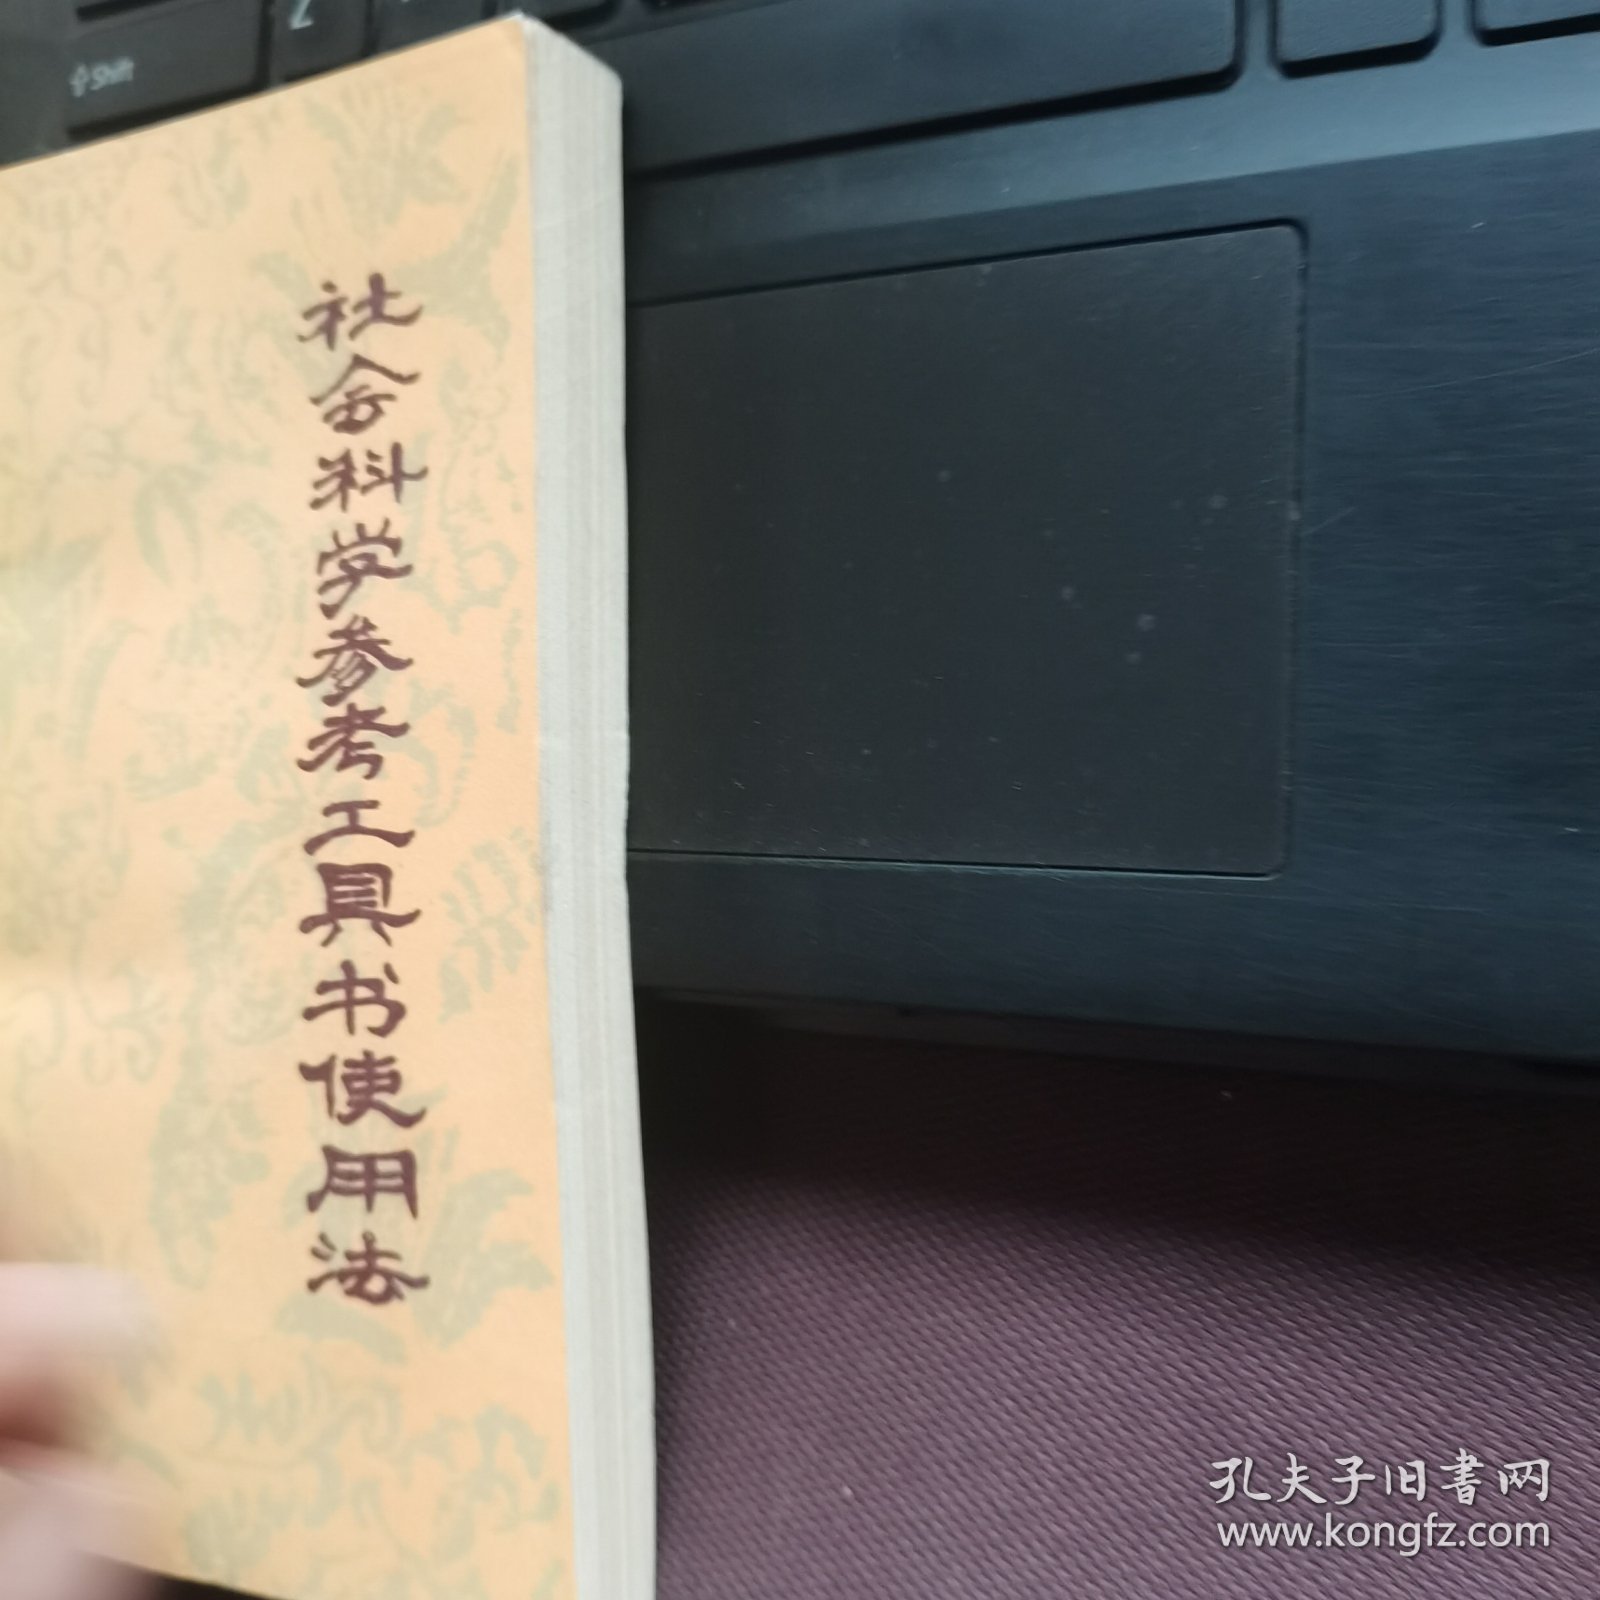 Z
⇧Shift
社会科学参考工具书使用法
孔夫子旧書网
www.kongfz.com